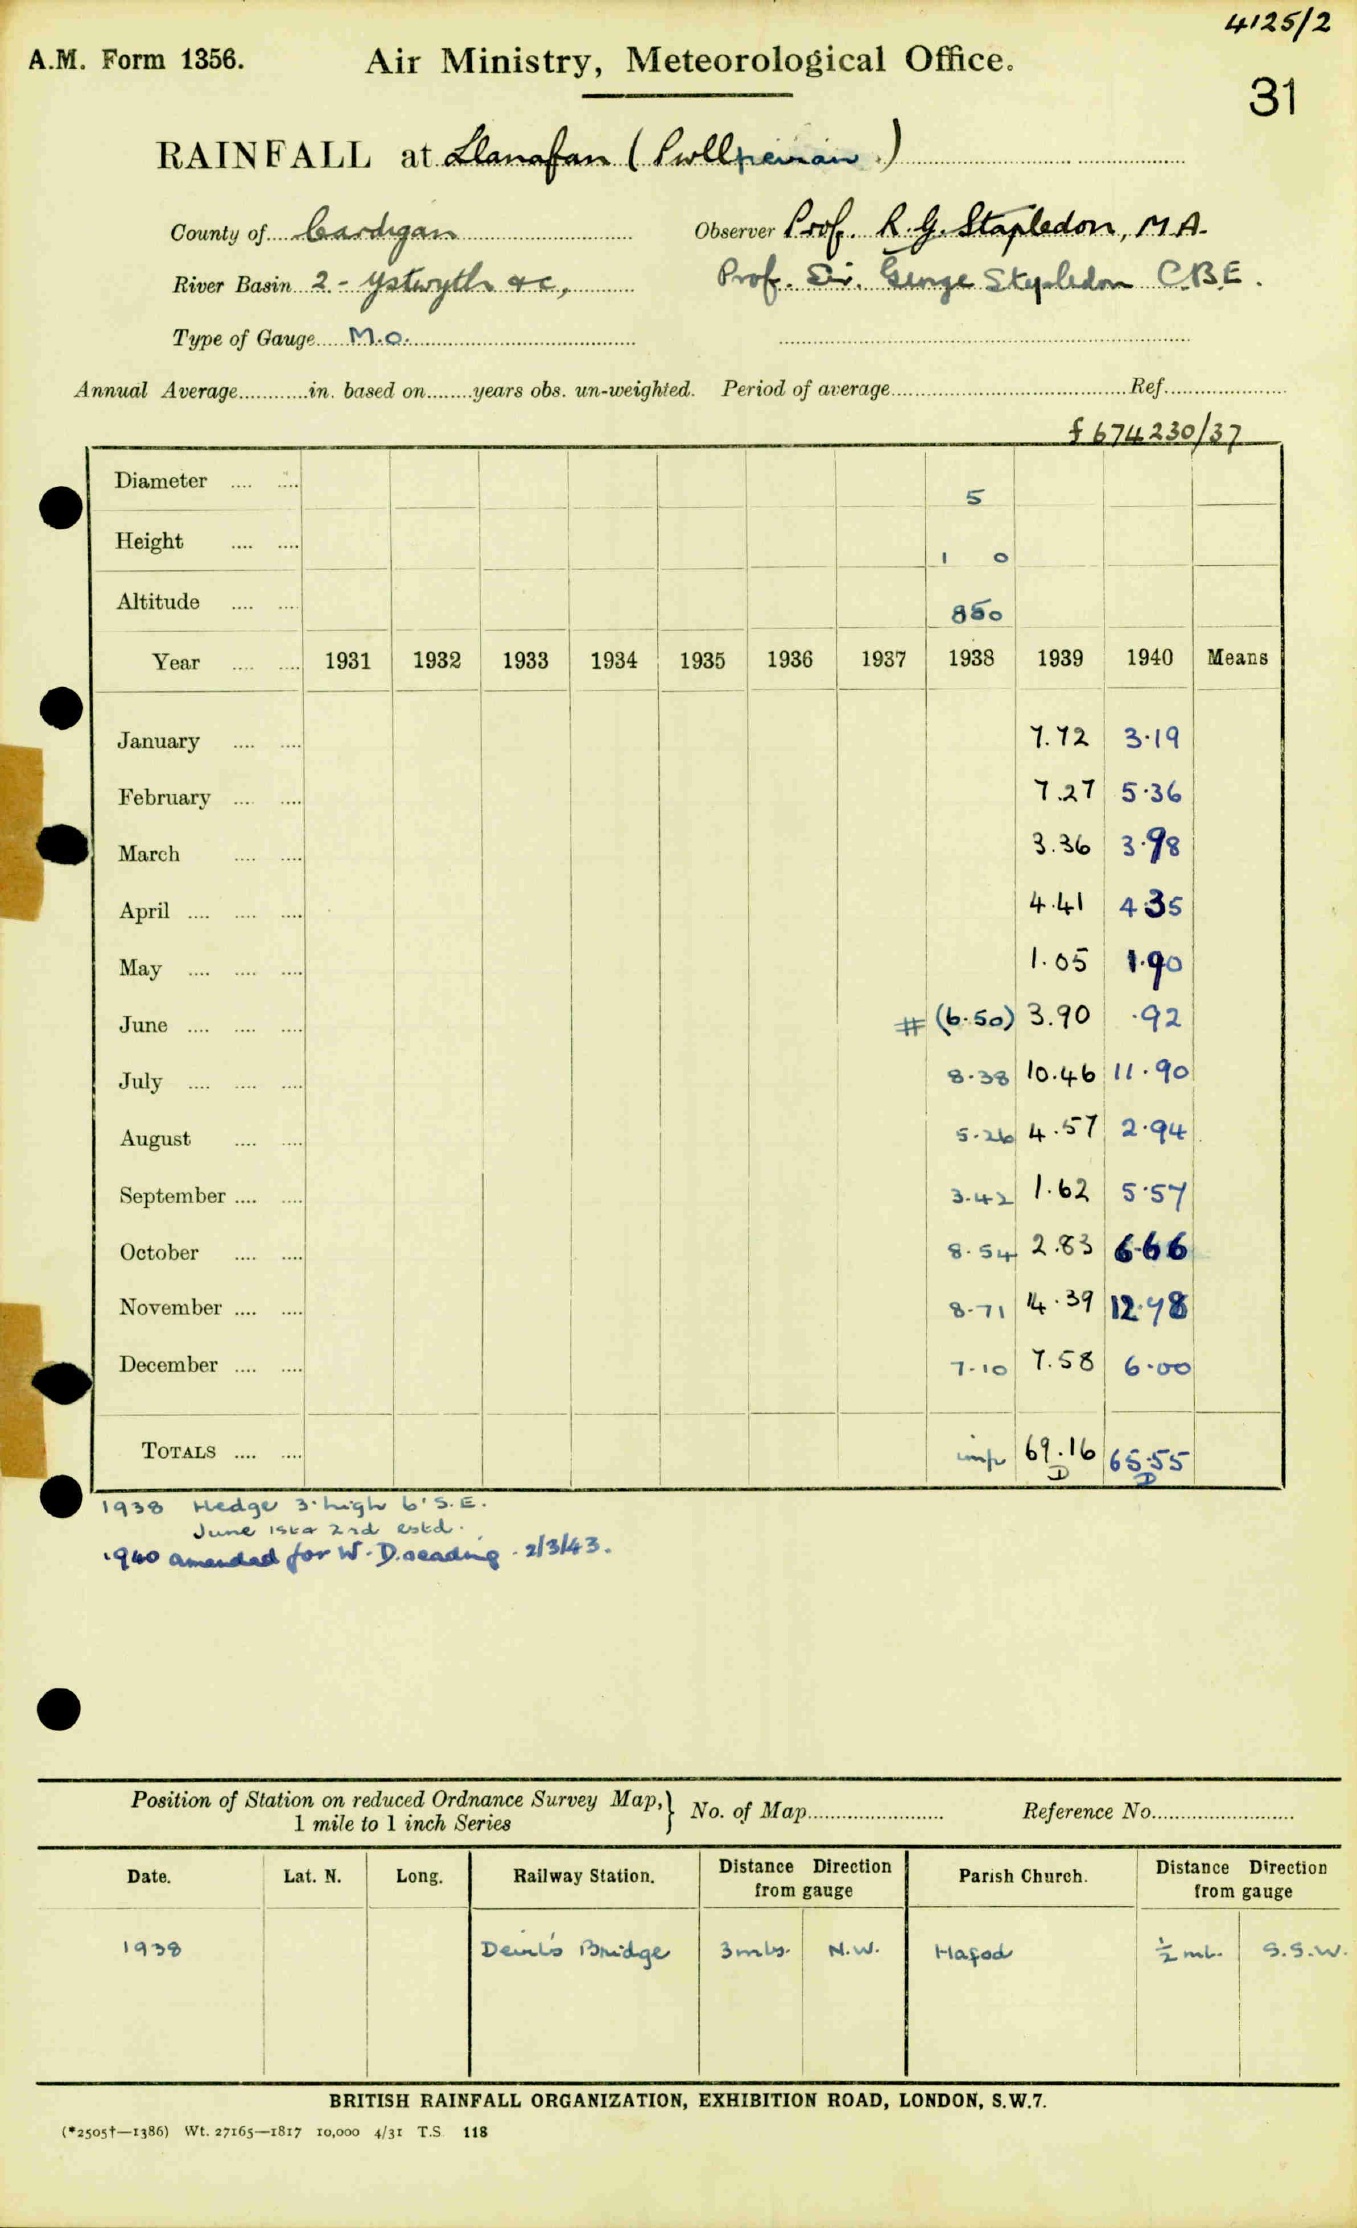 4125/2
A.M. Form 1356. Air Ministry, Meteorological Office.
31
RAINFALL at Llanafan (Pwllpeiran.)
County of Cardigan Observer Prof. R. G. Stapledon, M A.
River Basin 2 - Ystwyth &c, Prof. Sir. George Stapledon C.B.E.
Type of Gauge M.O.
Annual Average in. based on years obs. un-weighted. Period of average Ref.
f 674230/37
Diameter 5
Height 1 0
Altitude 850
Year 1931 1932 1933 1934 1935 1936 1937 1938 1939 1940 Means
January 7.72 3.19
February 7.27 5.36
March 3.36 3.98
April 4.41 4.35
May 1.05 1.90
June # (6.50) 3.90 .92
July 8.38 10.46 11.90
August 5.26 4.57 2.94
September 3.42 1.62 5.57
October 8.54 2.83 6.66
November 8.71 14.39 12.78
December 7.10 7.58 6.00
TOTALS imp 69.16 65.55
D D
1938 Hedge 3' high 6' S.E.
June 1st & 2nd estd.
1940 amended for W. D. reading. 2/3/43.
Position of Station on reduced Ordnance Survey Map, } No. of Map Reference No.
1 mile to 1 inch Series
Date. Lat. N. Long. Railway Station. Distance Direction from gauge Parish Church. Distance Direction from gauge
1938 Devil's Bridge 3 mls. N.W. Hafod ½ ml. S.S.W.
BRITISH RAINFALL ORGANIZATION, EXHIBITION ROAD, LONDON, S.W.7.
(*2505†—1386) Wt. 27165—1817 10,000 4/31 T.S. 118